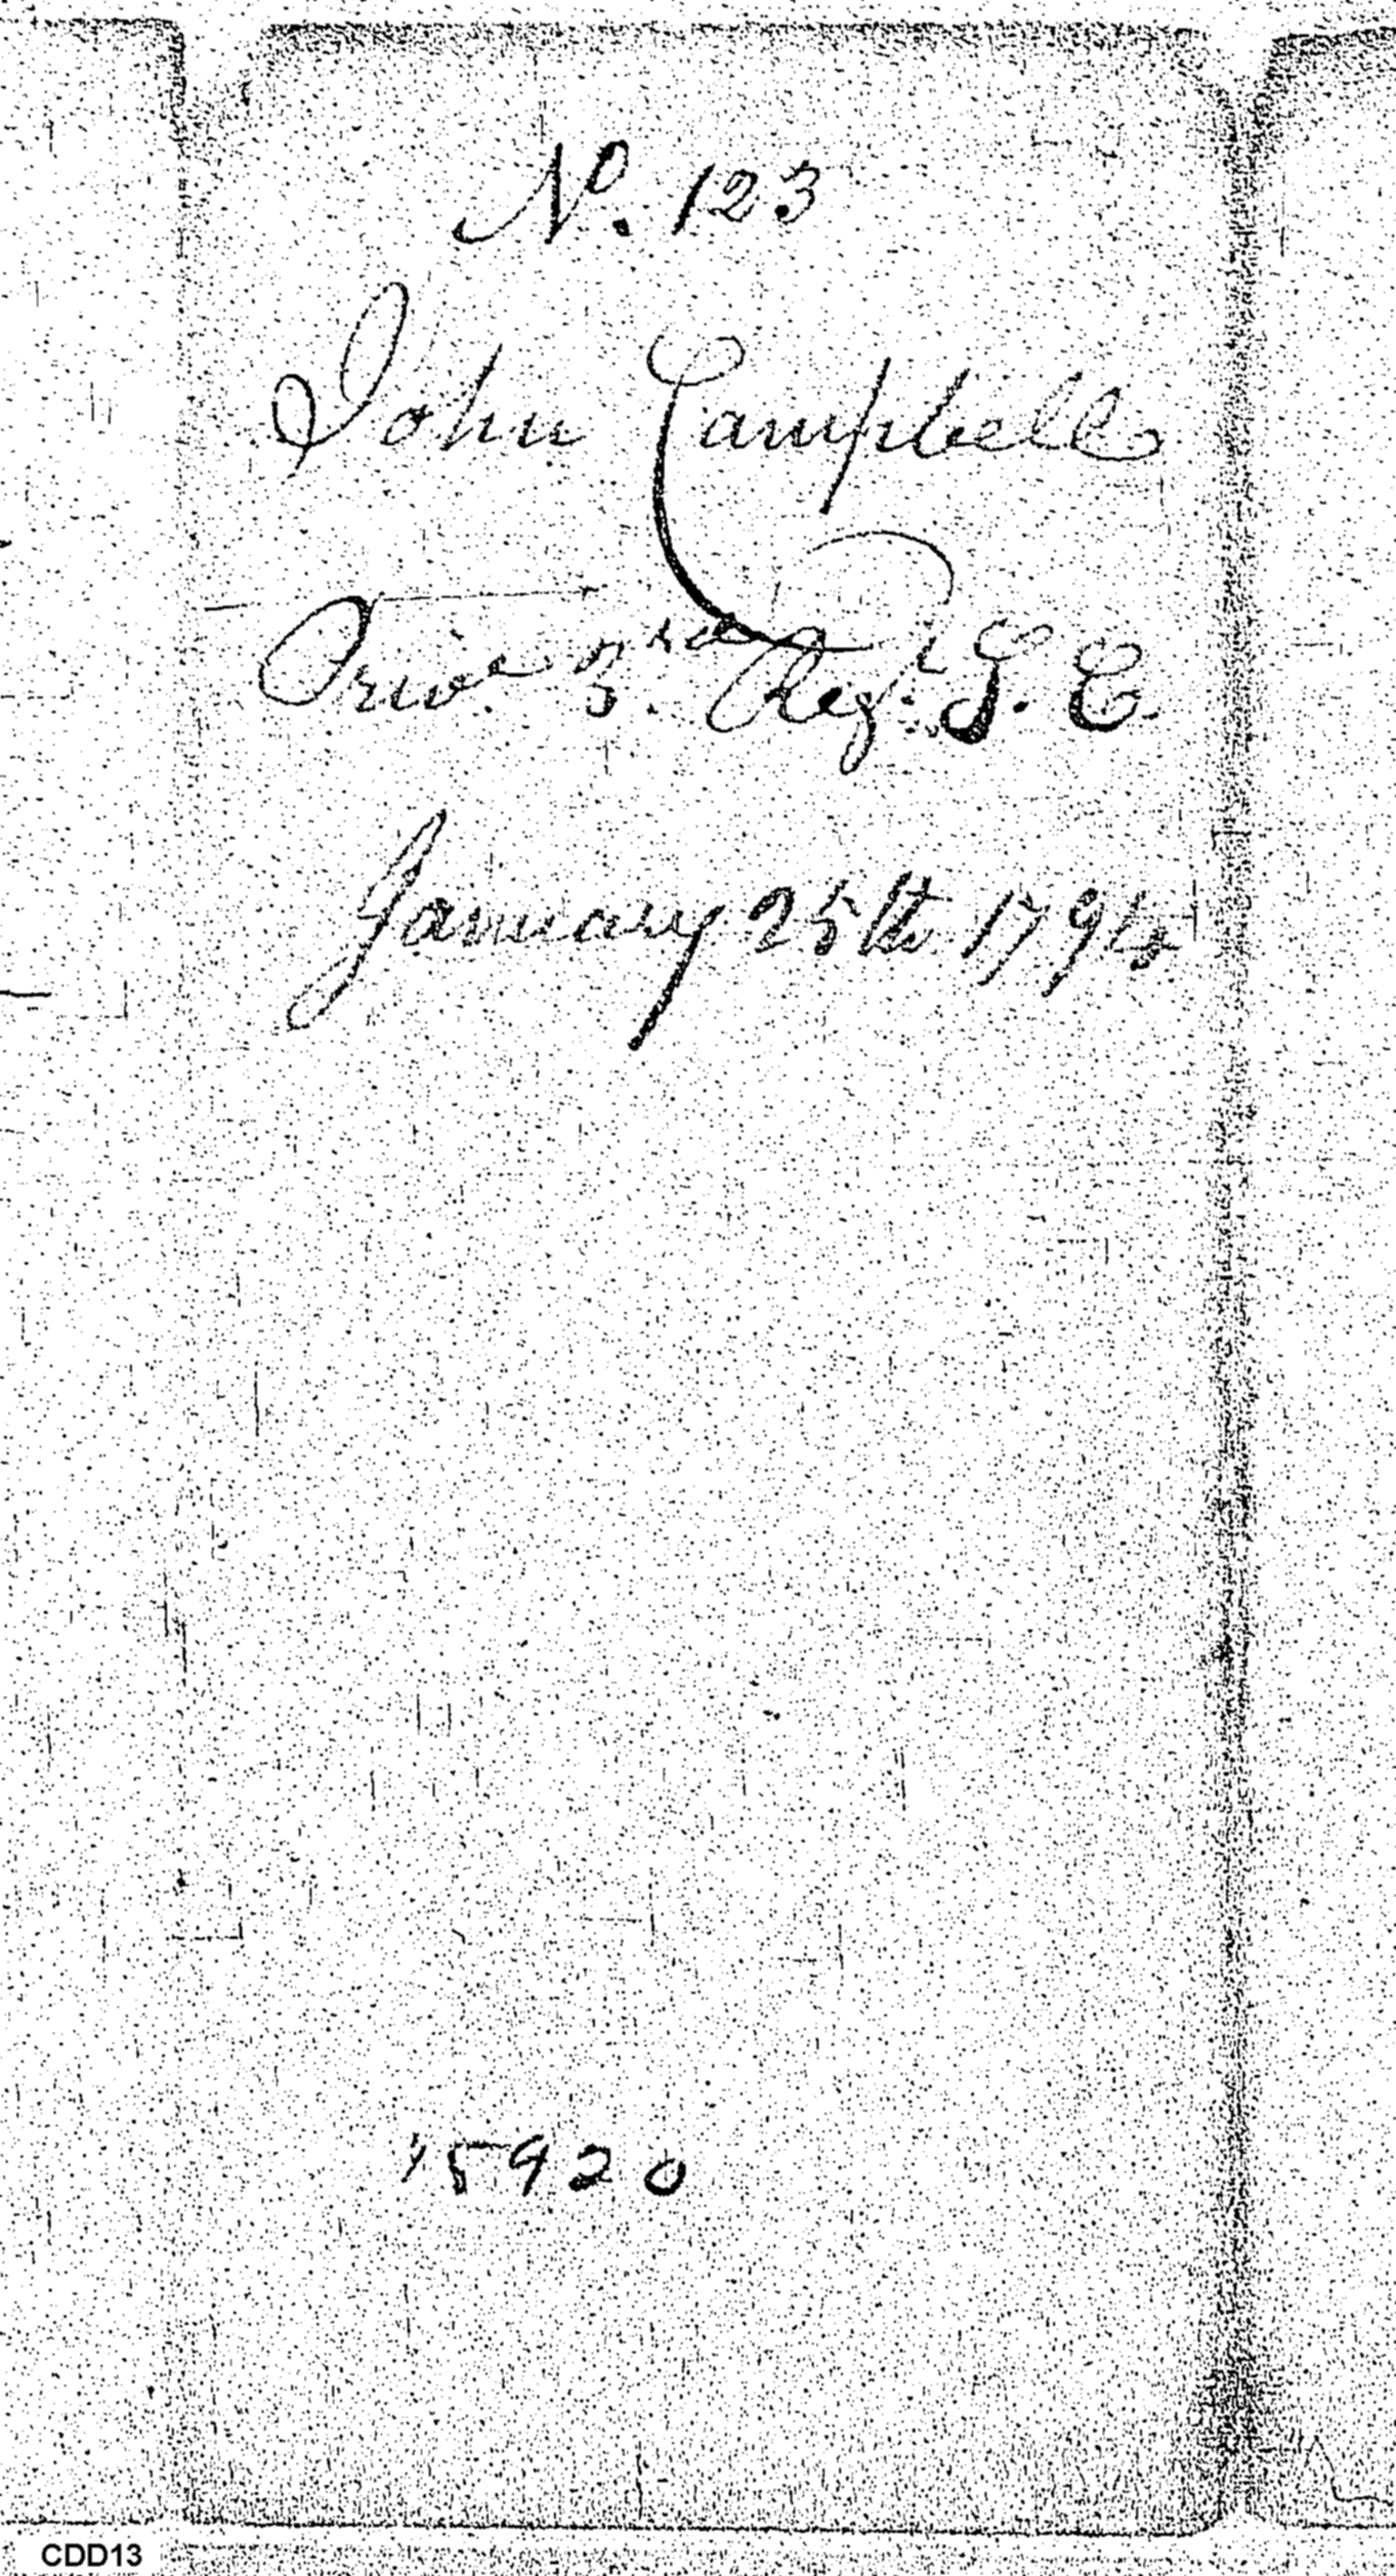 No. 123
John Campbell
Priv.e 3.rd Reg.t S. C.
January 25th 1794
15920
CDD13